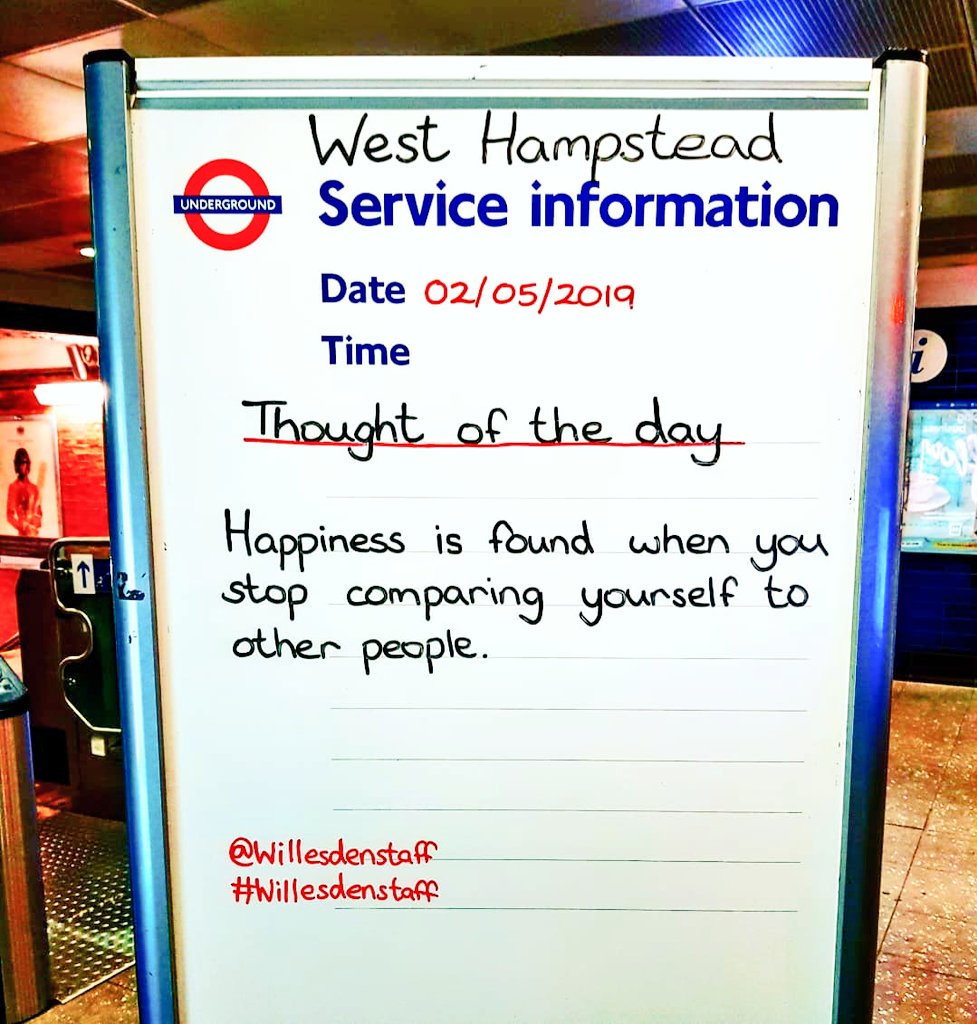 West Hampstead
UNDERGROUND
Service information
Date 02/05/2019
Time
Thought of the day
Happiness is found when you
stop comparing yourself to
other people.
@Willesdenstaff
#Willesdenstaff
i